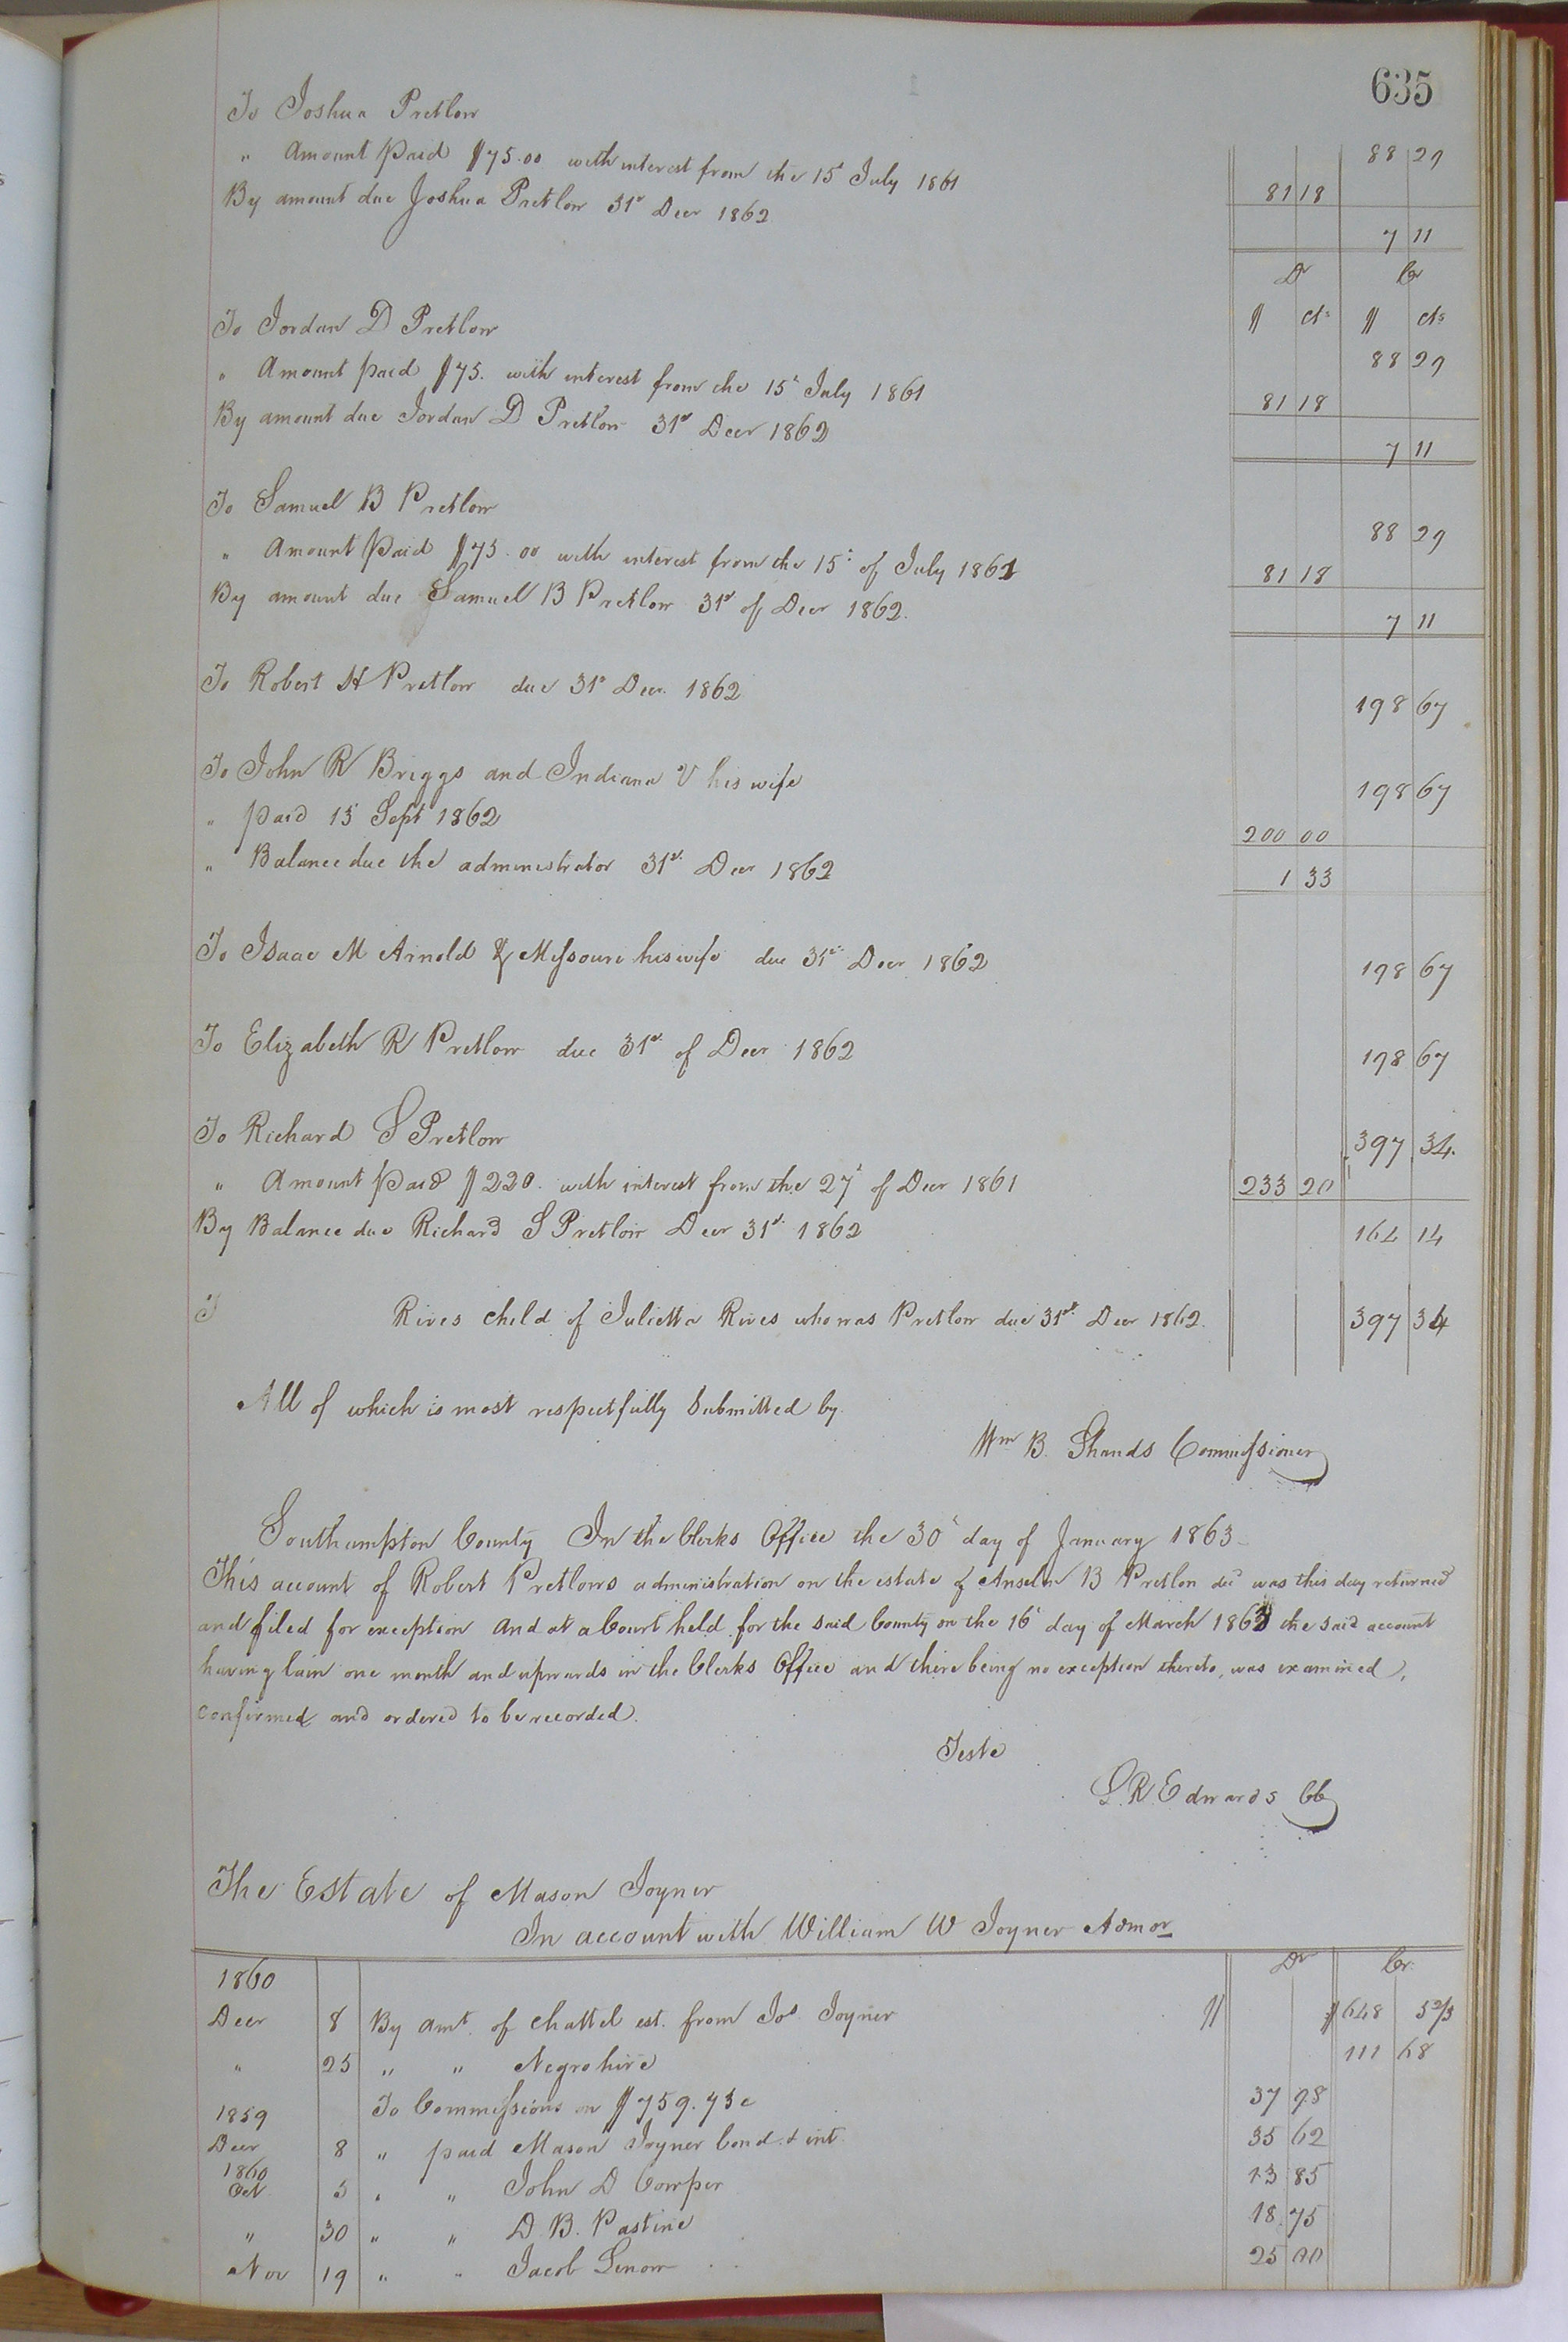 635
To Joshua Pretlow 88 29
" Amount paid $75.00 with interest from the 15t July 1861 81 18
By amount due Joshua Pretlow 31st Decr 1862 7 11
Dr Cr
$ cts $ cts
To Jordan D Pretlow 88 29
" Amount paid $75. with interest from the 15t July 1861 81 18
By amount due Jordan D Pretlow 31st Decr 1862 7 11
To Samuel B Pretlow 88 29
" Amount Paid $75.00 with interest from the 15t of July 1861 81 18
By amount due Samuel B Pretlow 31st of Decr 1862. 7 11
To Robert H Pretlow due 31st Decr. 1862 198 67
To John R Briggs and Indiana V his wife 198 67
" paid 15 Sept 1862 200 00
" Balance due the administrator 31st Decr 1862 1 33
To Isaac M Arnold & Missouri his wife due 31st Decr 1862 198 67
To Elizabeth R Pretlow due 31st of Decr 1862 198 67
To Richard S Pretlow 397 34
" Amount Paid $220. with interest from the 27t of Decr 1861 233 20
By Balance due Richard S Pretlow Decr 31st 1862 164 14
T Rives child of Julietta Rives who was Pretlow due 31st Decr 1862. 397 34
All of which is most respectfully Submitted by
Wm B. Shands Commissioner
Southampton County In the Clerks Office the 30t day of January 1863
This account of Robert Pretlows administration on the estate of Anselm B Pretlow decd was this day returned
and filed for exception And at a Court held for the said County on the 16t day of March 1863 the said account
having lain one month and upwards in the Clerks Office and there being no exception thereto, was examined,
confirmed and ordered to be recorded.
Teste
L. R. Edwards CC
The Estate of Mason Joyner
In account with William W Joyner Admor
1860 Dr Cr
Decr 8 By amt. of chattel est. from Jos Joyner $ $648 5 2/3
" 25 " " Negro hire 111 68
To Commissions on $759.73c 37 98
1859
Decr 8 " paid Mason Joyner bond & int 35 62
1860
Oct 5 " " John D Cowper 13 85
" 30 " " D. B. Pastine 18 75
Nov 19 " " Jacob 25 00